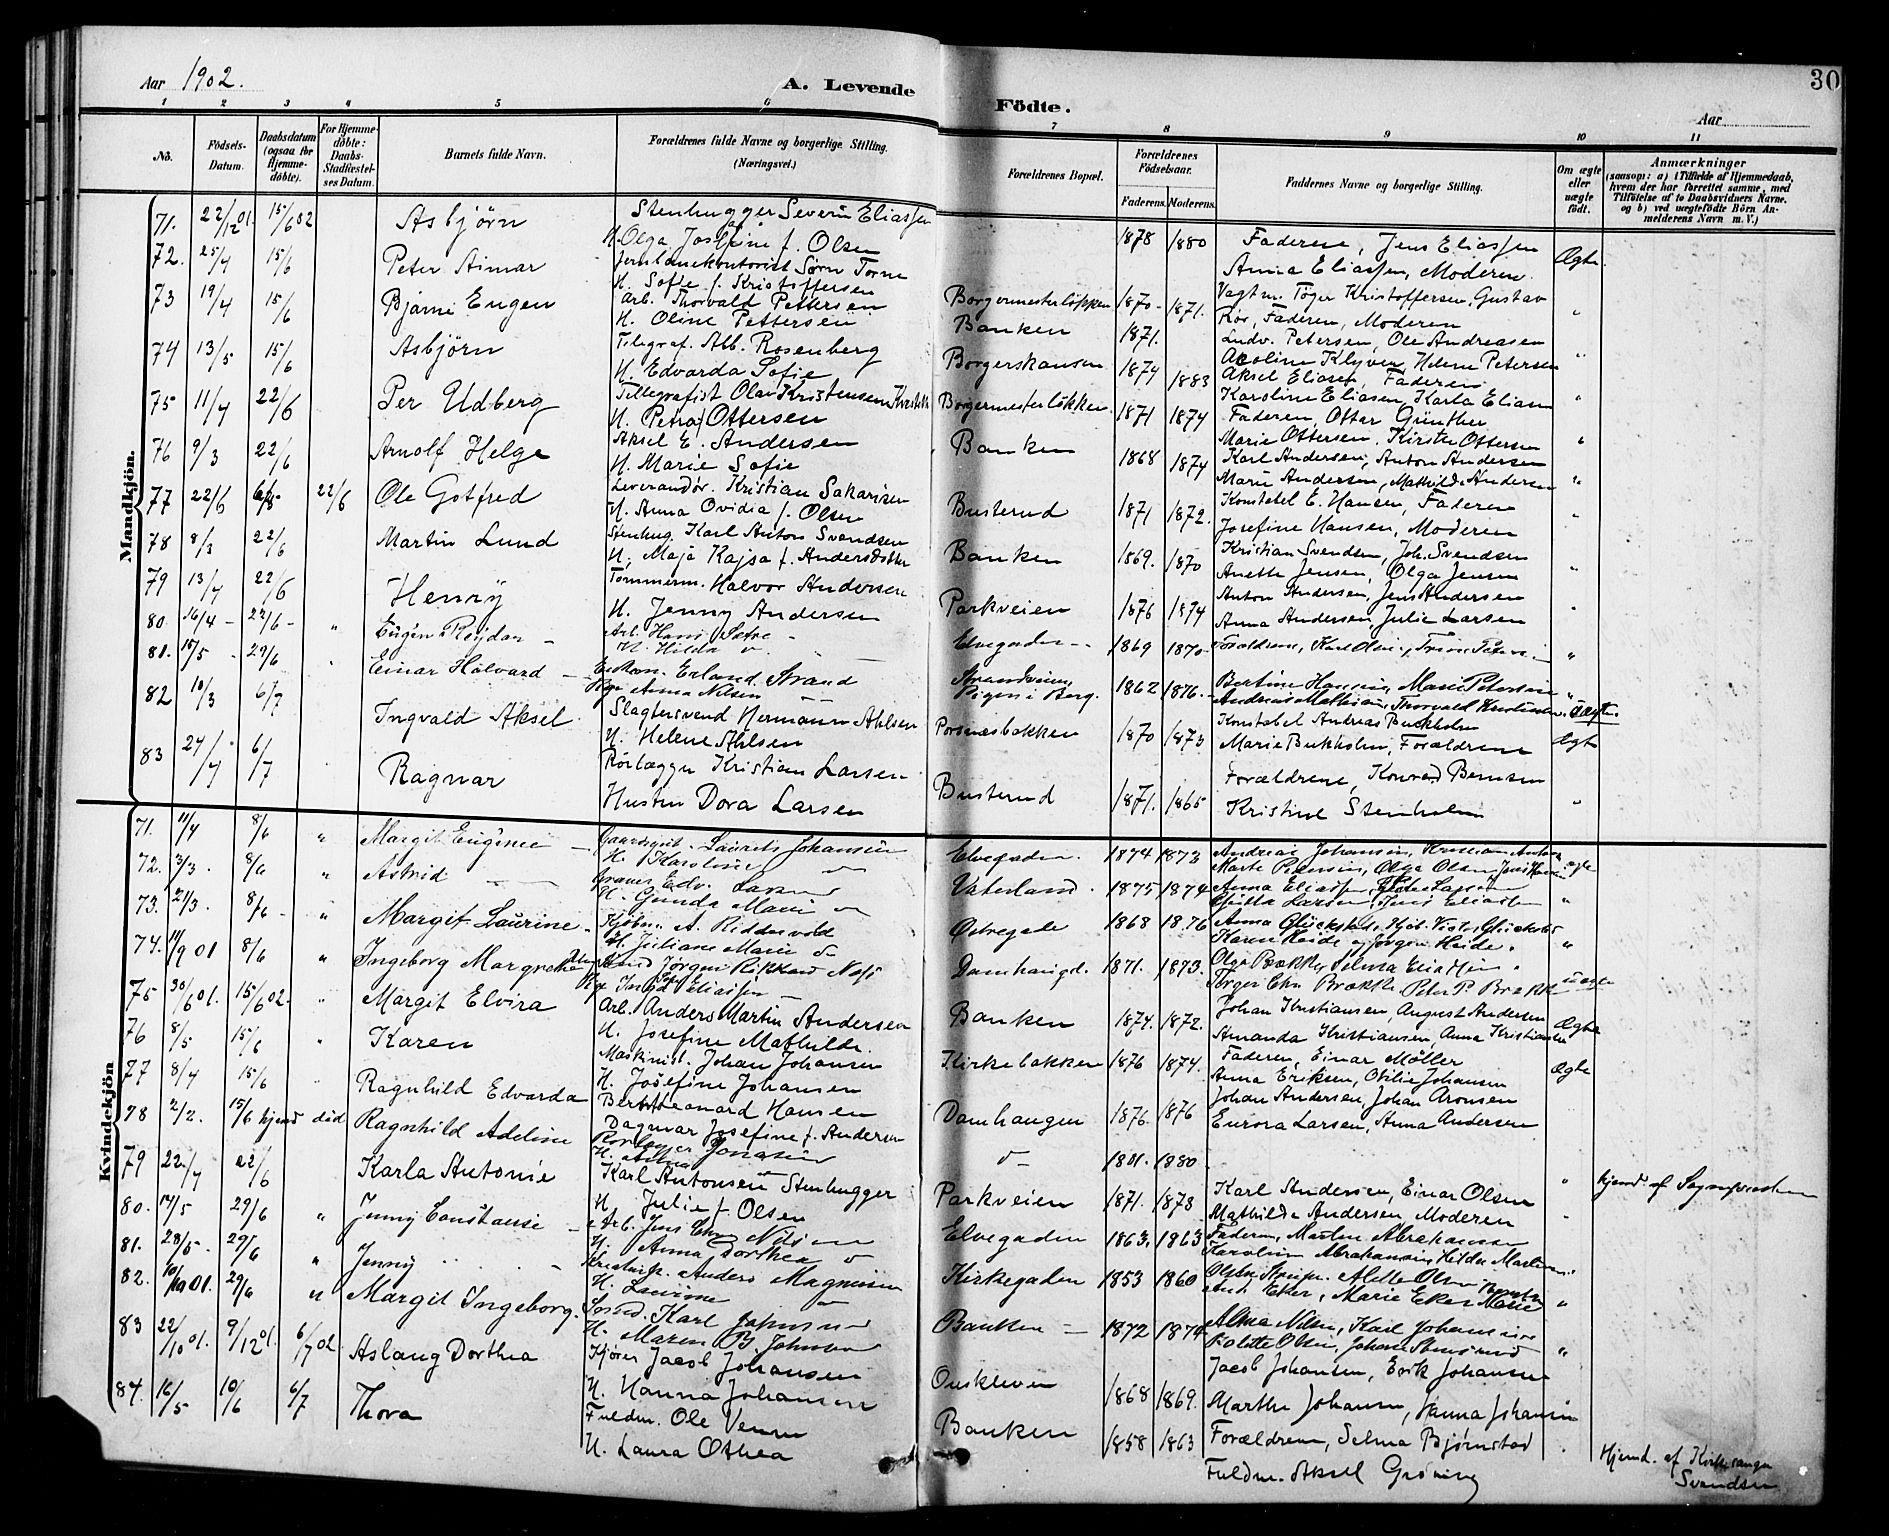 Aar 1902.
A. Levende Födte.
30
Aar
1 2 3 4 5 6 7 8 9 10 11
No.
Födsels-Datum.
Daabsdatum (ogsaa for Hjemmedøbte).
For Hjemmedøbte: Daabs-Stadfæstelses Datum.
Barnets fulde Navn.
Forældrenes fulde Navne og borgerlige Stilling. (Næringsvei.)
Forældrenes Bopæl.
Forældrenes Födselsaar.
Faderens. Moderens.
Faddernes Navne og borgerlige Stilling.
Om ægte eller uægte födt.
Anmærkninger (saasom: a) i Tilfælde af Hjemmedaab, hvem der har forrettet samme, med Tilföielse af to Daabsvidners Navne. og b) ved uægtefödte Börn Anmelderens Navn m. V.)
Mandkjön.
71. 22/12 01. 15/6 02 Asbjørn Stenhugger Severin Eliassen
H. Olga Josefine f. Olsen 1878 1880 Faderen, Jens Eliassen Ægte
Anna Eliassen, Moderen.
72. 25/4 15/6 Peter Aimar Jernbanekontorist Sørn Torne
H. Sofie f. Kristoffersen Borgermesterløkken 1870- 1871. Vagtm. Töger Kristoffersen, Gustav "
Rör, Faderen, Moderen
73 19/4 15/6 Bjarne Eugen Arb. Thorvald Pettersen
H. Oline Pettersen Banken 1871. Ludv. Petersen, Ole Andreasen "
Klyver, Helene Petersen
74 13/5 15/6 Asbjörn Telegraf. Alb. Rosenberg
H. Edvarda Sofie Borgerskansen 1874 1883 Aksel Eliasen, Faderen "
Karoline Eliasen, Karla Eliasen
75 11/4 22/6 Per Udberg Tellegrafist Olav Kristensen
H. Petra Ottersen Borgermesterløkken. 1871 1874 Faderen, Ottar Günther "
Marie Ottersen, Kirsten Ottersen
76 9/3 22/6 Arnolf Helge Aksel E. Andersen
H. Marie Sofie Banken 1868 1874 Karl Andersen, Anton Andersen "
Marie Andersen, Mathilde Andersen
77 22/6 22/6 Ole Gotfred Leverandör. Kristian Sakarisen
H. Anna Ovidia f. Olsen Busterud 1871 1872. Konstabel E. Hansen, Faderen "
Josefine Hansen, Moderen
78 8/3 22/6 Martin Lund Stenhug. Karl Anton Svendsen
H. Maja Kajsa f. Andersdotter Banken 1869. 1870 Kristian Svendsen, Joh. Svendsen "
Anette Jensen, Olga Jensen
79 13/4 22/6 Henry Tömmerm. Halvor Andersen
H. Jenny Andersen Parkveien 1876 1874 Anton Andersen, Jens Andersen "
Anna Andersen, Julie Larsen
80. 16/4 - 22/6 - " Eugen Reidar - Arb. Hans Sætre -
H. Hilda do Elvegaden - 1869 1870 Forældrene, Karl Olsen, "
81. 15/5 - 29/6 " Einar Halvard - Erland Strand
Pige Anna Nilsen Strandveien, Pigen i Berg. 1862 1876. - Bertine Hansen, Marie Petersen "
Andreas Mathisen, Thorvald Kristiansen. Uægte.
82 10/3 6/7 Ingvald Aksel Slagtersvend Hermann Ahlsen
H. Helene Ahlsen Porsnæsbakken 1870 1873 Konstabel Andreas Buckholm Ægte
Marie Bukholm, Forældrene
83 24/4 6/7 Ragnar Rörlægger Kristian Larsen
Hustru Dora Larsen Busterud 1871. 1865 Forældrene, Konrad Bernsen "
Kristine Stenholm
Kvindekjön
71. 11/4 8/6 " Margit Eugenie - Laurits Johansen
H. Karoline do Elvegaden. 1874 1873 Andreas Johansen, Kristian Anton ægte
Marte Pedersen, Olga Olsen
72. 3/3. 8/6 " Astrid Graver Edv. Larsen
H. Gunda Marie do Vaterland. 1875 1874 Anna Eliassen, Peter Larsen "
Gitta Larsen, Jens Eliassen
73. 21/3. 8/6 - " Margit Laurine - Kjöbm. A. Riddervold
H. Juliane Marie do Östregade 1868 1876 Anna Glückstad, Kjöb. Victor Glückstad "
Karen Heide og Jørgen Heide.
74. 14/9 01 8/6 " Ingeborg Margrethe Jörgen Rikkard Næss
Pige Eliassen Damhaugd. 1871. 1873. Olga Brække, Selma Eliassen uægte
Torger Chr Brække, Peter P. Brække
75 30/6 01. 15/6 02. " Margit Elvira Arb. Anders Martin Andersen
H. Josefine Mathilde. Banken 1874. 1872. Johan Kristiansen, August Andersen Ægte
Amanda Kristiansen, Anna Kristiansen
76 8/5 15/6 " Karen Maskinist. Johan Johansen
H. Josefine Johansen Kirkebakken 1876 1874. Faderen, Einar Möller Ægte
Anna Eriksen, Otilie Johansen
77 8/4 15/6 Ragnhild Edvarda Bernt Leonard Hansen
Dagmar Josefine f. Andersen Damhaugen 1876. 1876 Johan Andersen, Johan Aronsen
Eurora Larsen, Anna Andersen
78 2/2. 15/6 hjemd död Ragnhild Adeline Jonasen
H. do - 1801. 1880 " hjemd. af
79 22/4 22/6 Karla Antonie Karl Antonsen Stenhugger
H. Julie f. Olsen Parkveien 1871. 1873 Karl Andersen, Einar Olsen "
Mathilde Andersen, Moderen
80. 14/5 29/6 " Jenny Constanse - Arb. Jens Chr. Nilsen
H. Anna Dorthea do Elvegaden 1863. 1863 Faderen, Martin Abrahamsen
Karoline Abrahamsen, Hilda Martinsen
81. 28/5. 29/6 " Jenny Anders Magnusen
H. Lavine do Kirkegaden 1853 1860 Alette Olsen "
Eker, Marie Eker
82. 10/10 01. 29/6 " Margit Ingeborg. Karl Johnsen
H. Maren B. Johnsen Banken - 1872 1874 Alma Nilsen, Karl Johansen "
Bolette Olsen, Johan
83 22/10 01. 9/12 01. 6/7 02. Aslaug Dorthea Kjörer Jacob Johansen
H. Hanna Johansen Ouskleven 1868 1869. Jacob Johansen, Erik Johansen
Marthe Johansen, Hanna Johansen
84. 16/5 10/6 6/7 Thora Fuldm. Ole Venem
H. Laura Othea Banken 1858 1863 Forældrene, Selma Bjørnstad . Hjemd. af Kirkesanger Svendsen
Fuldm. Aksel Gröning